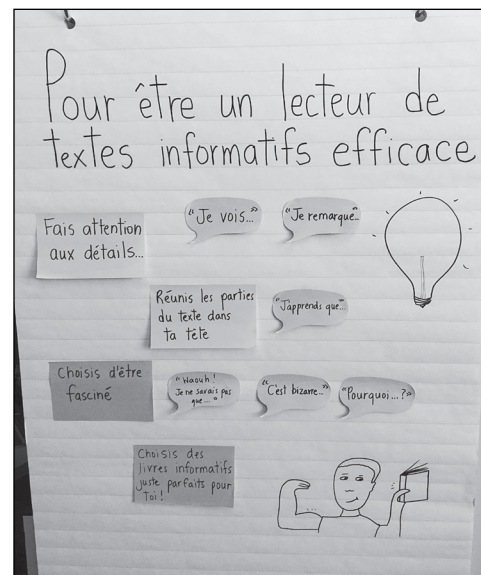 Pour être un lecteur de
textes informatifs efficace
Fais attention
aux détails...
"Je vois..."
"Je remarque..
Réunis les parties
du texte dans
ta tête
"J'apprends que..."
Choisis d'être
fasciné
"Waouh!
Je ne savais pas
que..."
"C'est bizarre..."
"Pourquoi...?"
Choisis des
livres informatifs
juste parfaits pour
toi!